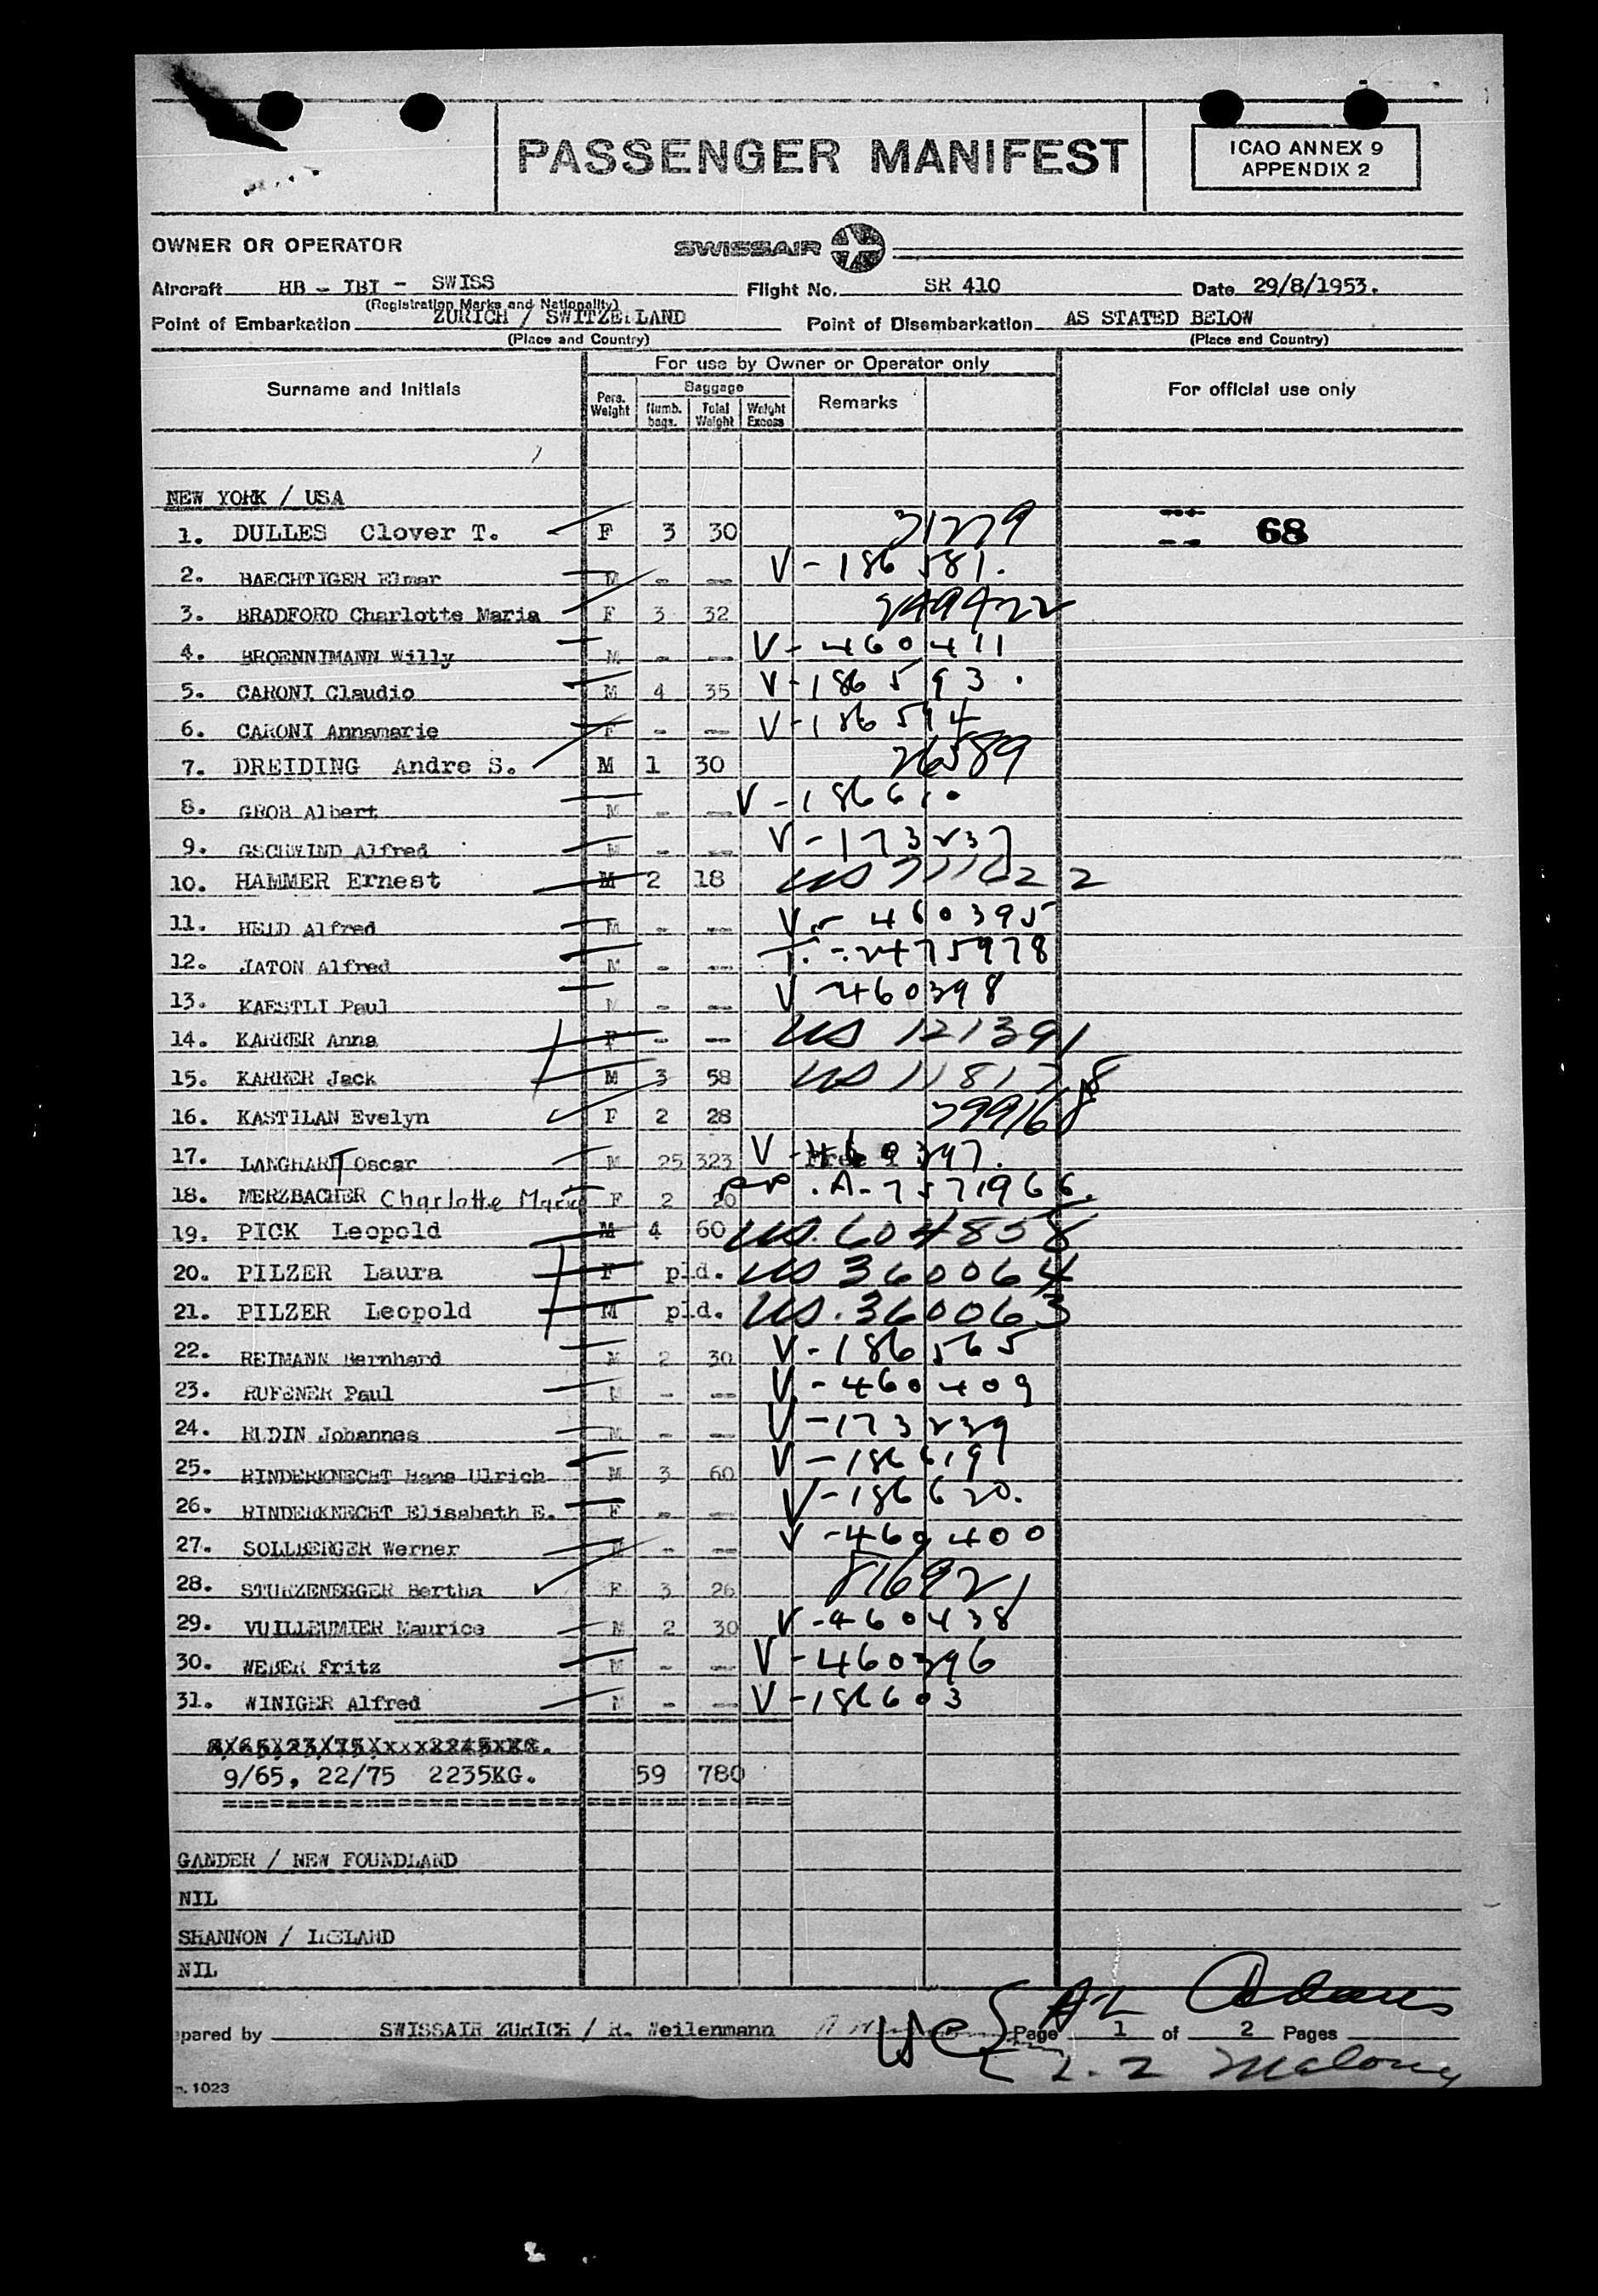 PASSENGER MANIFEST
ICAO ANNEX 9
APPENDIX 2
OWNER OR OPERATOR SWISSAIR
Aircraft HB - IBI - SWISS Flight No. SR 410 Date 29/8/1953.
(Registration Marks and Nationality)
Point of Embarkation ZURICH / SWITZERLAND Point of Disembarkation AS STATED BELOW
(Place and Country) (Place and Country)
For use by Owner or Operator only
Surname and Initials Pers. Weight Baggage Numb. bags. Total Weight Weight Excess Remarks For official use only
NEW YORK / USA
1. DULLES Clover T. F 3 30 31279 68
2. BAECHTIGER Elmar M - -- V-186581.
3. BRADFORD Charlotte Maria F 3 32 249422
4. BROENNIMANN Willy M - -- V-460411
5. CARONI Claudio M 4 35 V-186593.
6. CARONI Annamarie F - -- V-186594
7. DREIDING Andre S. M 1 30 26589
8. GROB Albert M - -- V-186610
9. GSCHWIND Alfred M - -- V-173237
10. HAMMER Ernest M 2 18 US 711622
11. HELD Alfred M - -- V-460395
12. JATON Alfred M - -- T.-2475978
13. KAESTLI Paul M - -- V-460398
14. KARRER Anna F - -- US 121391
15. KARRER Jack M 3 58 US 118178
16. KASTILAN Evelyn F 2 28 29916
17. LANGHART Oscar M 25 323 V-460397.
18. MERZBACHER Charlotte Marie F 2 20 PP.A-7571966.
19. PICK Leopold M 4 60 US.604858
20. PILZER Laura F pld. US 360064
21. PILZER Leopold M pld. US.360063
22. REIMANN Bernhard M 2 30 V-186565
23. RUFENER Paul M - -- V-460409
24. RUDIN Johannes M - -- V-173239
25. RINDERKNECHT Hans Ulrich M 3 60 V-186619
26. RINDERKNECHT Elisabeth E. F - -- V-186620.
27. SOLLBERGER Werner M - -- V-460400
28. STURZENEGGER Bertha F 3 26 816921
29. VUILLEUMIER Maurice M 2 30 V-460438
30. WEBER Fritz M - -- V-460396
31. WINIGER Alfred M - -- V-186603
9/65, 22/75 2235KG. 59 780
GANDER / NEW FOUNDLAND
NIL
SHANNON / IRELAND
NIL
pared by SWISSAIR ZURICH / R. Weilenmann Page 1 of 2 Pages
Adams
Malony
1023